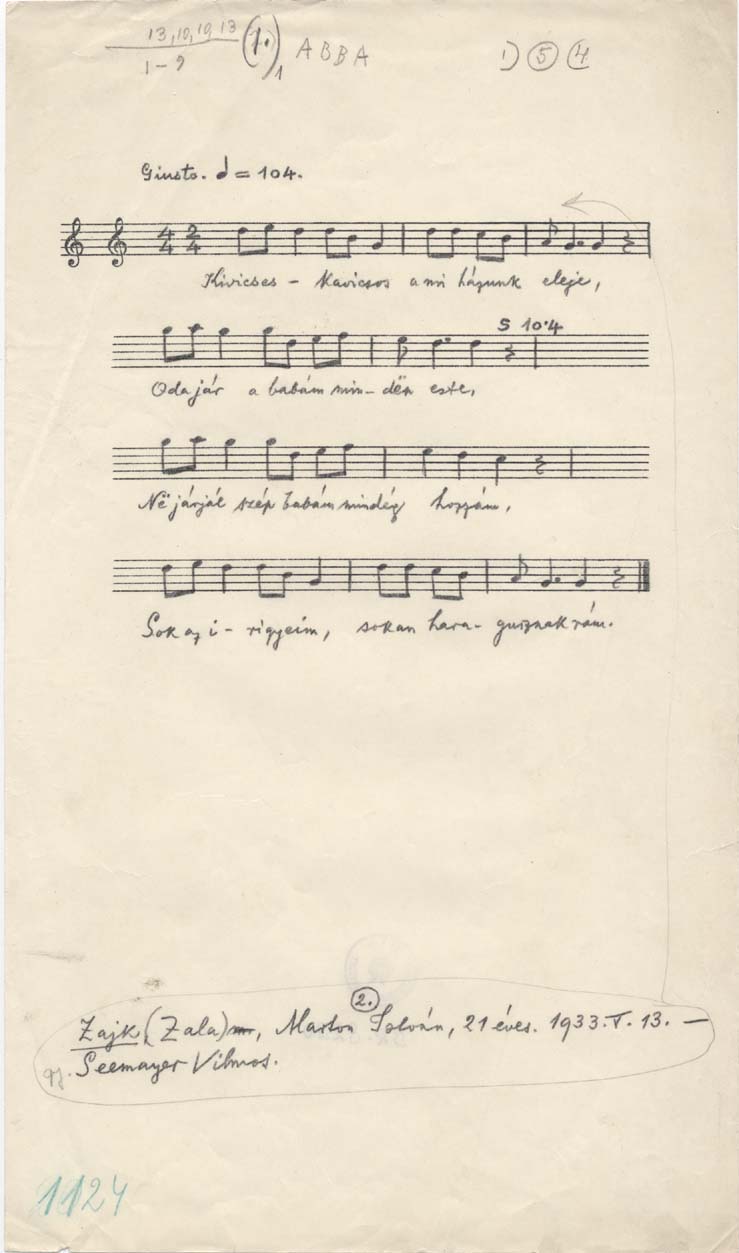 13, 10, 10, 13 (1.)1 ABBA 1) 5 4
1-9
Giusto. = 104.
4 2
4 4
Kivicses - kavicsos a mi házunk eleje,
5 10 4
Oda jár a babám min-dën este,
Në járjál szép babám mindég hozzám,
Sok az i-rigyeim, sokan hara-gusznak rám.
2.
Zajk (Zala), Marton István, 21 éves. 1933. V. 13. —
Seemayer Vilmos.
1124